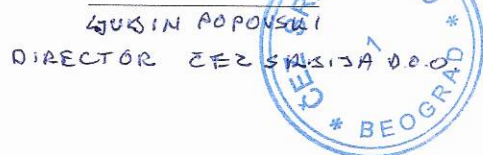 LJUBIN POPOVSKI
DIRECTOR ČEZ SRBIJA D.O.O
ČEZ SR
* BEOGRAD *
1